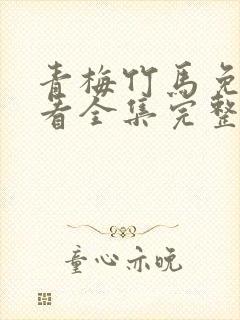 青梅竹马免
看全集完整
童心亦晚